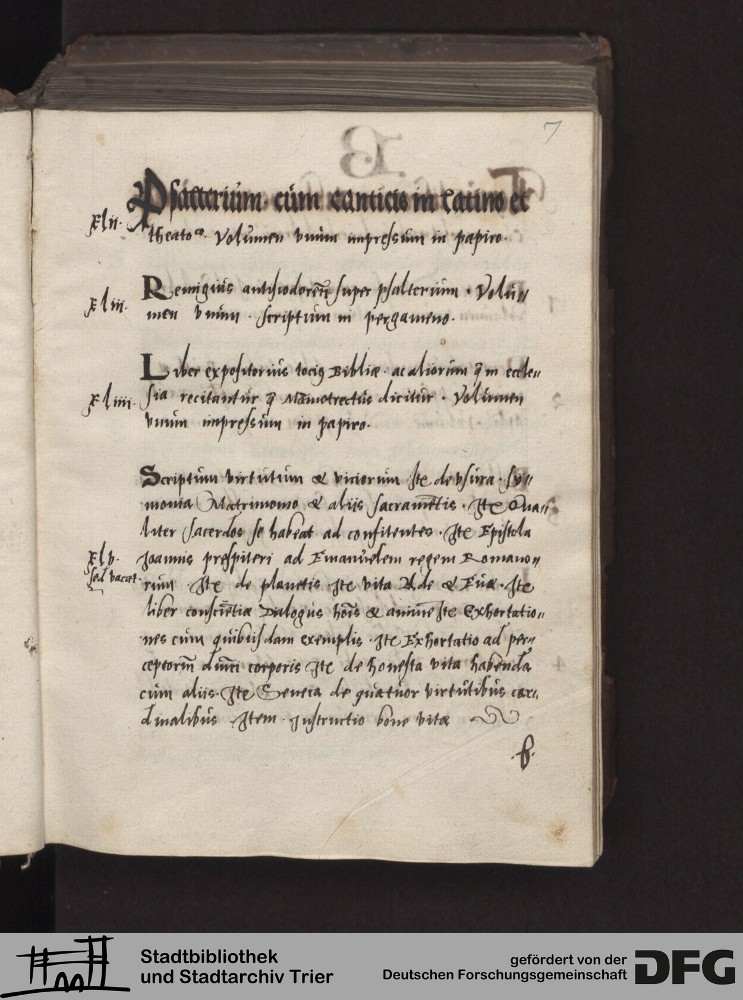 7
Psalterium cum canticis in latino et
xlii. theato co. Volumen vnum impressum in papiro.
xliii. Remigius antisiodoreñ super psalterium. Volu//
men vnum. scriptum in pergameno.
Liber expositorius toci9 Bibliæ. ac aliorum q̃ in eccle//
xliiii. sia recitantur q̃ Mamotrectus dicitur. Volumen
vnum impressum in papiro.
Scriptum virtutum & viciorum Ite de vsura. sy//
monia Matrimonio & aliis sacramẽtis. Ite Qua//
liter sacerdos se habeat ad confitentes. Ite Epistola
xlv. Joannis prespiteri ad Emanuelem regem Romano//
sed vacat. rum. Ite de planetis Ite vita Ade & Euæ. Ite
liber consciẽtiæ Dialogus hois & anime Ite Exhortatio//
nes cum quibusdam exemplis. Ite Exhortatio ad per//
ceptorem corporis Ite de honesta vita habenda
cum aliis. Ite Seneca de quatuor virtutibus car//
dinalibus. Item. Instructio bone vitæ
b.
Stadtbibliothek
und Stadtarchiv Trier
gefördert von der
Deutschen Forschungsgemeinschaft
DFG